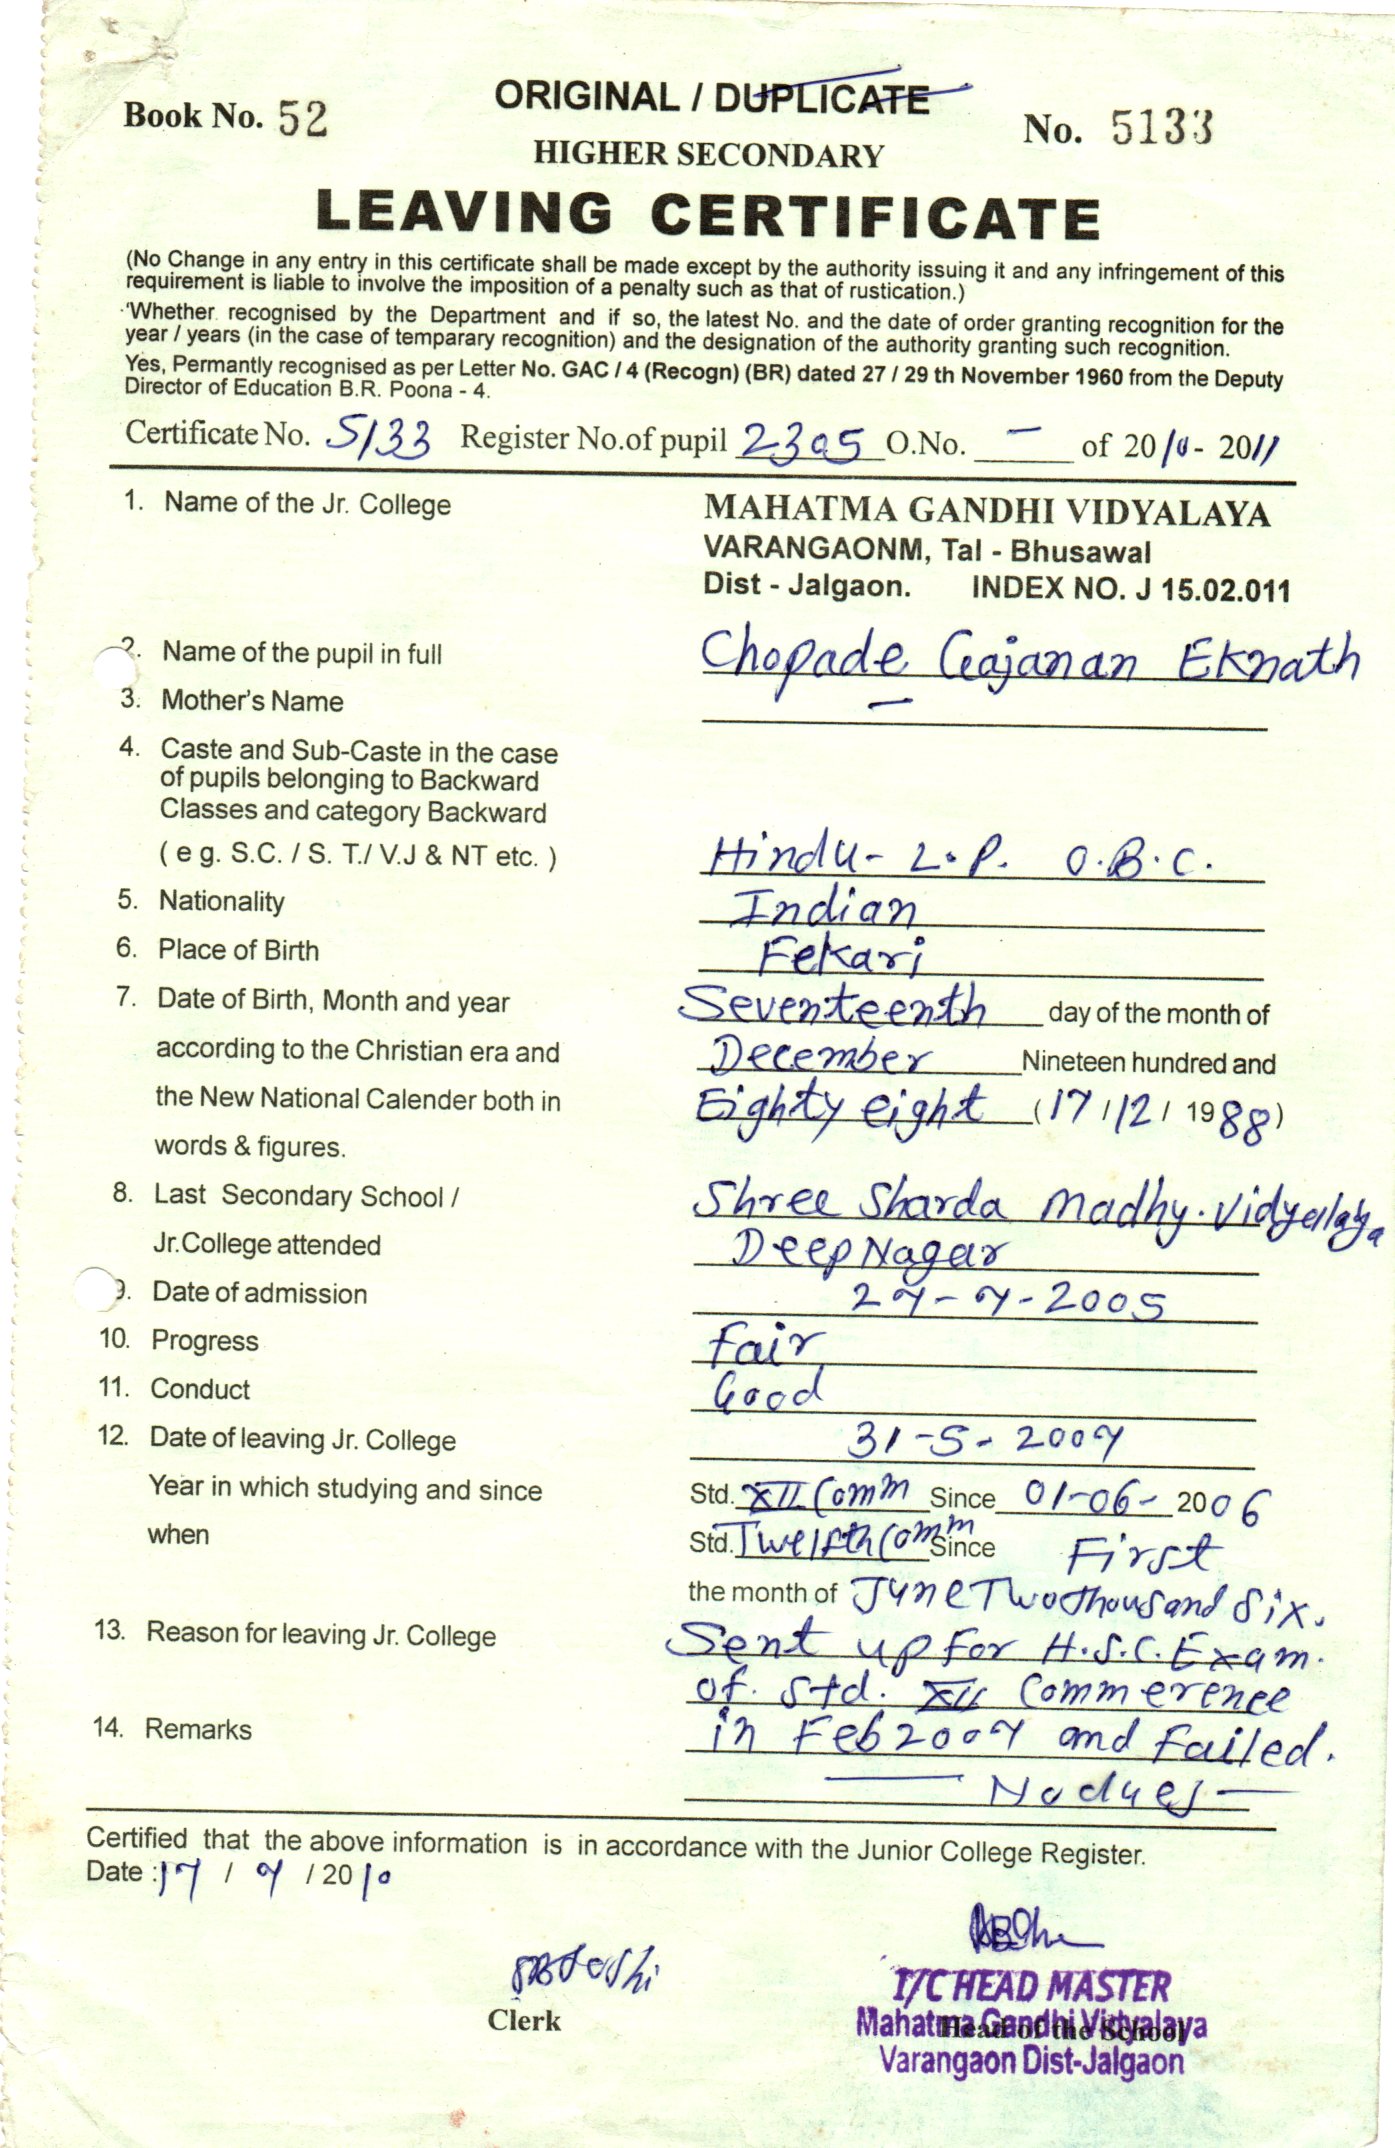 ORIGINAL / DUPLICATE
Book No. 52
No. 5133
HIGHER SECONDARY
LEAVING CERTIFICATE
(No Change in any entry in this certificate shall be made except by the authority issuing it and any infringement of this
requirement is liable to involve the imposition of a penalty such as that of rustication.)
'Whether recognised by the Department and if so, the latest No. and the date of order granting recognition for the
year / years (in the case of temparary recognition) and the designation of the authority granting such recognition.
Yes, Permantly recognised as per Letter No. GAC / 4 (Recogn) (BR) dated 27 / 29 th November 1960 from the Deputy
Director of Education B.R. Poona - 4.
Certificate No. 5133 Register No.of pupil 2305 O.No. — of 2010 - 2011
1. Name of the Jr. College MAHATMA GANDHI VIDYALAYA
VARANGAONM, Tal - Bhusawal
Dist - Jalgaon. INDEX NO. J 15.02.011
2. Name of the pupil in full Chopade Gajanan Eknath
3. Mother's Name —
4. Caste and Sub-Caste in the case
of pupils belonging to Backward
Classes and category Backward
( e g. S.C. / S. T./ V.J & NT etc. ) Hindu - L.P. O.B.C.
5. Nationality Indian
6. Place of Birth Fekari
7. Date of Birth, Month and year Seventeenth day of the month of
according to the Christian era and December Nineteen hundred and
the New National Calender both in Eighty eight (17 / 12 / 1988)
words & figures.
8. Last Secondary School / Shree Sharda Madhy. Vidyalaya
Jr.College attended DeepNagar
9. Date of admission 27-7-2005
10. Progress Fair
11. Conduct Good
12. Date of leaving Jr. College 31-5-2007
Year in which studying and since Std. XII Comm Since 01-06- 2006
when Std. Twelfth Comm Since First
the month of June Two thousand Six.
13. Reason for leaving Jr. College Sent up for H.S.C. Exam.
of. Std. XII Commerence
14. Remarks in Feb 2007 and Failed.
— No dues —
Certified that the above information is in accordance with the Junior College Register.
Date : 17 / 7 / 2010
Clerk
I/C HEAD MASTER
Mahatma Gandhi Vidyalaya
Head of the School
Varangaon Dist-Jalgaon